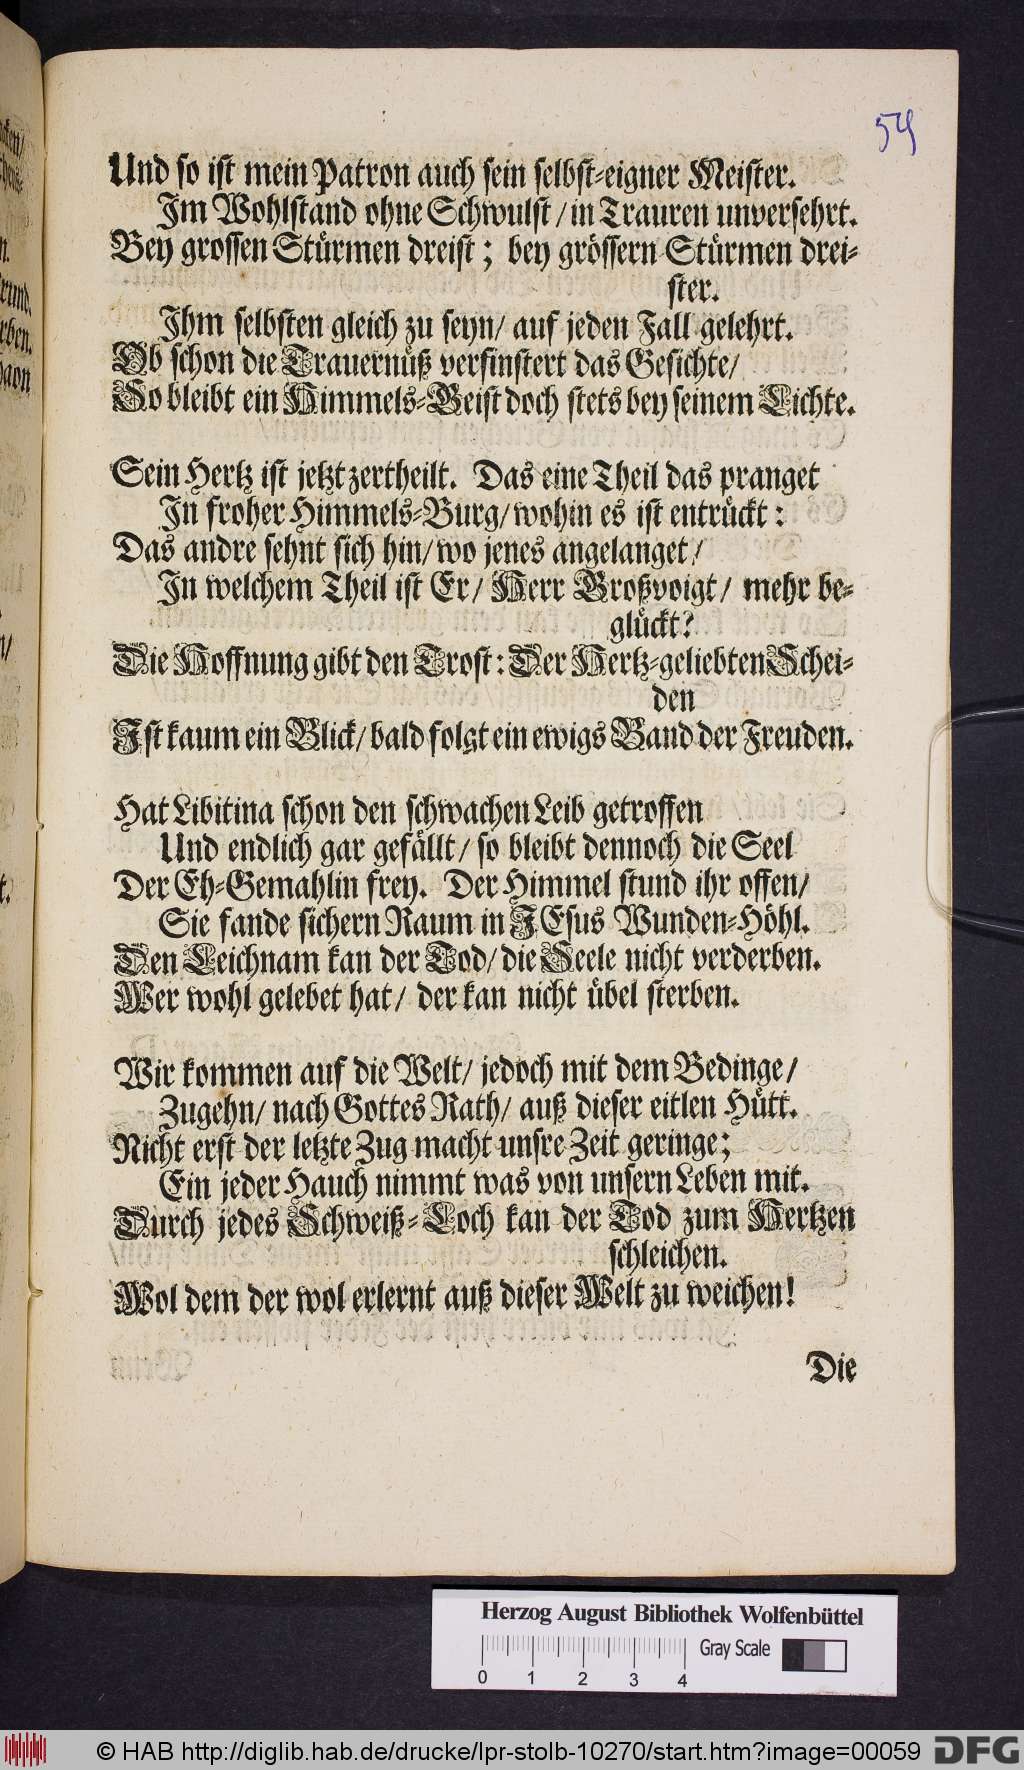 54
Und so ist mein Patron auch sein selbst-eigner Meister.
Im Wohlstand ohne Schwulst / in Trauren unversehrt.
Bey grossen Stürmen dreist; bey grössern Stürmen drei-
ster.
Ihm selbsten gleich zu seyn / auf jeden Fall gelehrt.
Ob schon die Trauernüß verfinstert das Gesichte /
So bleibt ein Himmels-Geist doch stets bey seinem Lichte.
Sein Hertz ist jetzt zertheilt. Das eine Theil das pranget
In froher Himmels-Burg / wohin es ist entrückt:
Das andre sehnt sich hin / wo jenes angelanget /
In welchem Theil ist Er / Herr Großvoigt / mehr be-
glückt?
Die Hoffnung gibt den Trost: Der Hertz-geliebten Schei-
den
Ist kaum ein Blick / bald folgt ein ewigs Band der Freuden.
Hat Libitina schon den schwachen Leib getroffen
Und endlich gar gefällt / so bleibt dennoch die Seel
Der Eh-Gemahlin frey. Der Himmel stund ihr offen /
Sie fande sichern Raum in JEsus Wunden-Höhl.
Den Leichnam kan der Tod / die Seele nicht verderben.
Wer wohl gelebet hat / der kan nicht übel sterben.
Wir kommen auf die Welt / jedoch mit dem Bedinge /
Zugehn / nach Gottes Rath / auß dieser eitlen Hütt.
Nicht erst der letzte Zug macht unsre Zeit geringe;
Ein jeder Hauch nimmt was von unsern Leben mit.
Durch jedes Schweiß-Loch kan der Tod zum Hertzen
schleichen.
Wol dem der wol erlernt auß dieser Welt zu weichen!
Die
Herzog August Bibliothek Wolfenbüttel
Gray Scale
0 1 2 3 4
© HAB http://diglib.hab.de/drucke/lpr-stolb-10270/start.htm?image=00059
DFG